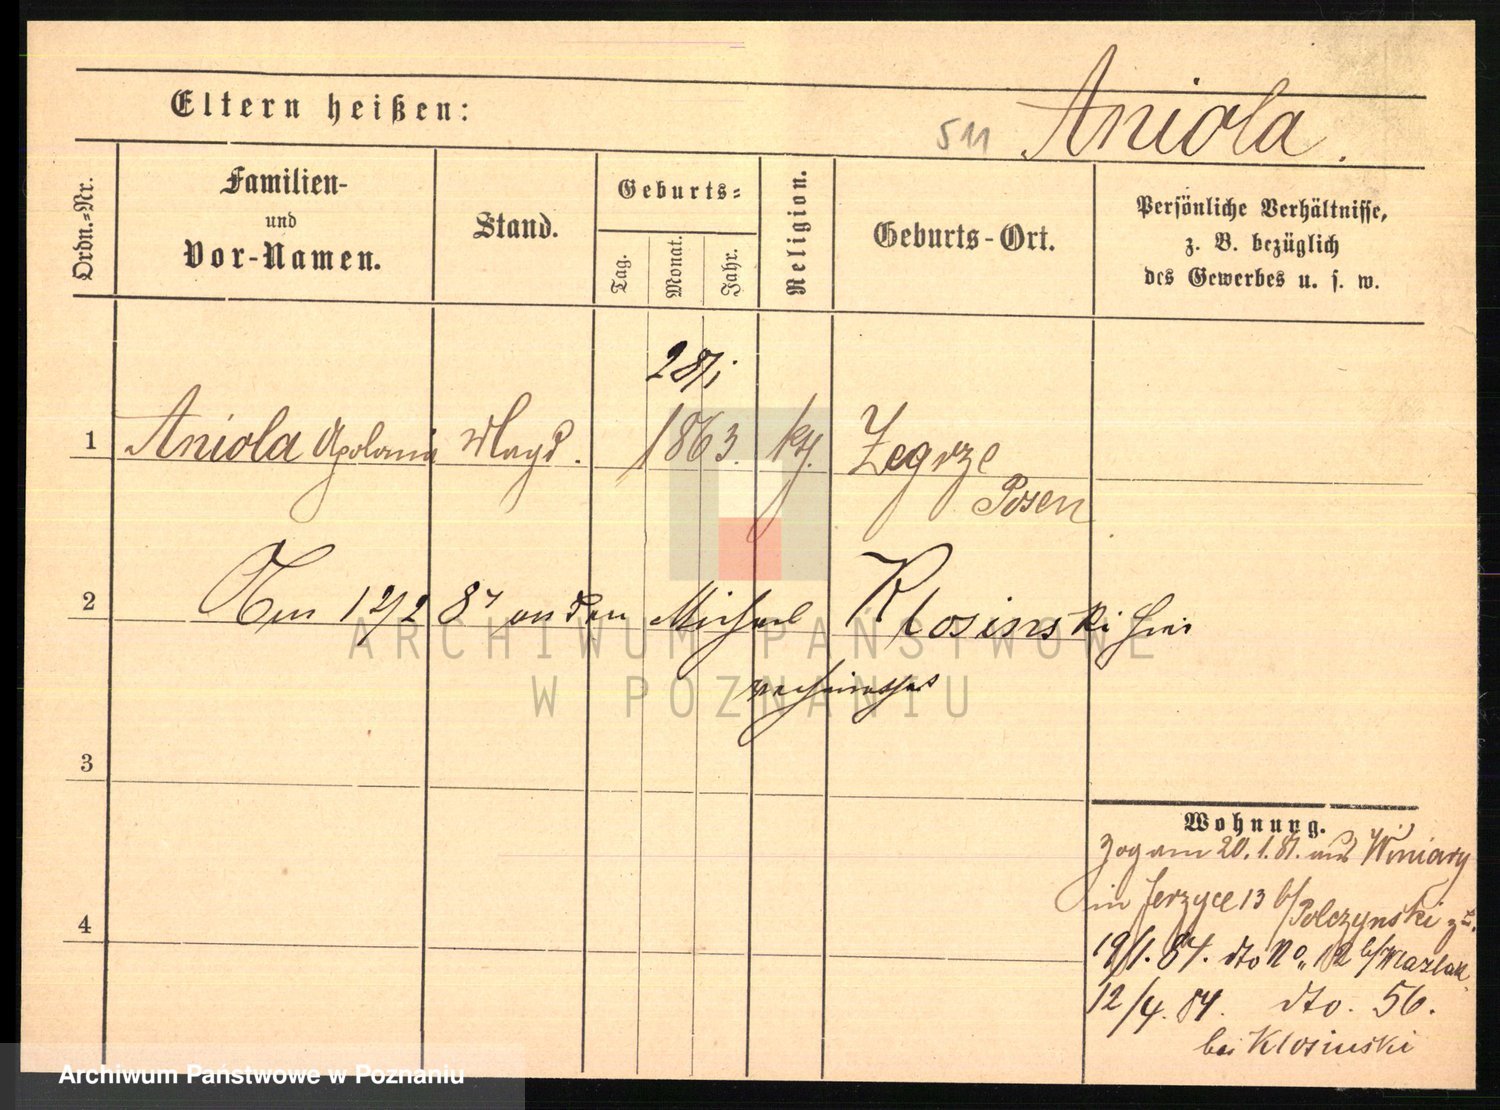 Eltern heißen:
511 Aniola.
Ordn.=Nr.
Familien-
und
Vor-Namen.
Stand.
Geburts=
Tag.
Monat.
Jahr.
Religion.
Geburts-Ort.
Persönliche Verhältnisse,
z. B. bezüglich
des Gewerbes u. s. w.
28/1
1 Aniola Apolonia Magd. 1863. kth. Zegrze
Posen
2 Am 12/2 87 an den Michael Klosinski hier
verheirathet
3
4
Wohnung.
Zog am 20.1.81. aus Winiary
in Jerzyce 13 b/Polczynski
19/1. 84. dto No. 12 b/
12/4. 84. dto. 56.
bei Klosinski
ARCHIWUM PAŃSTWOWE
W POZNANIU
Archiwum Państwowe w Poznaniu